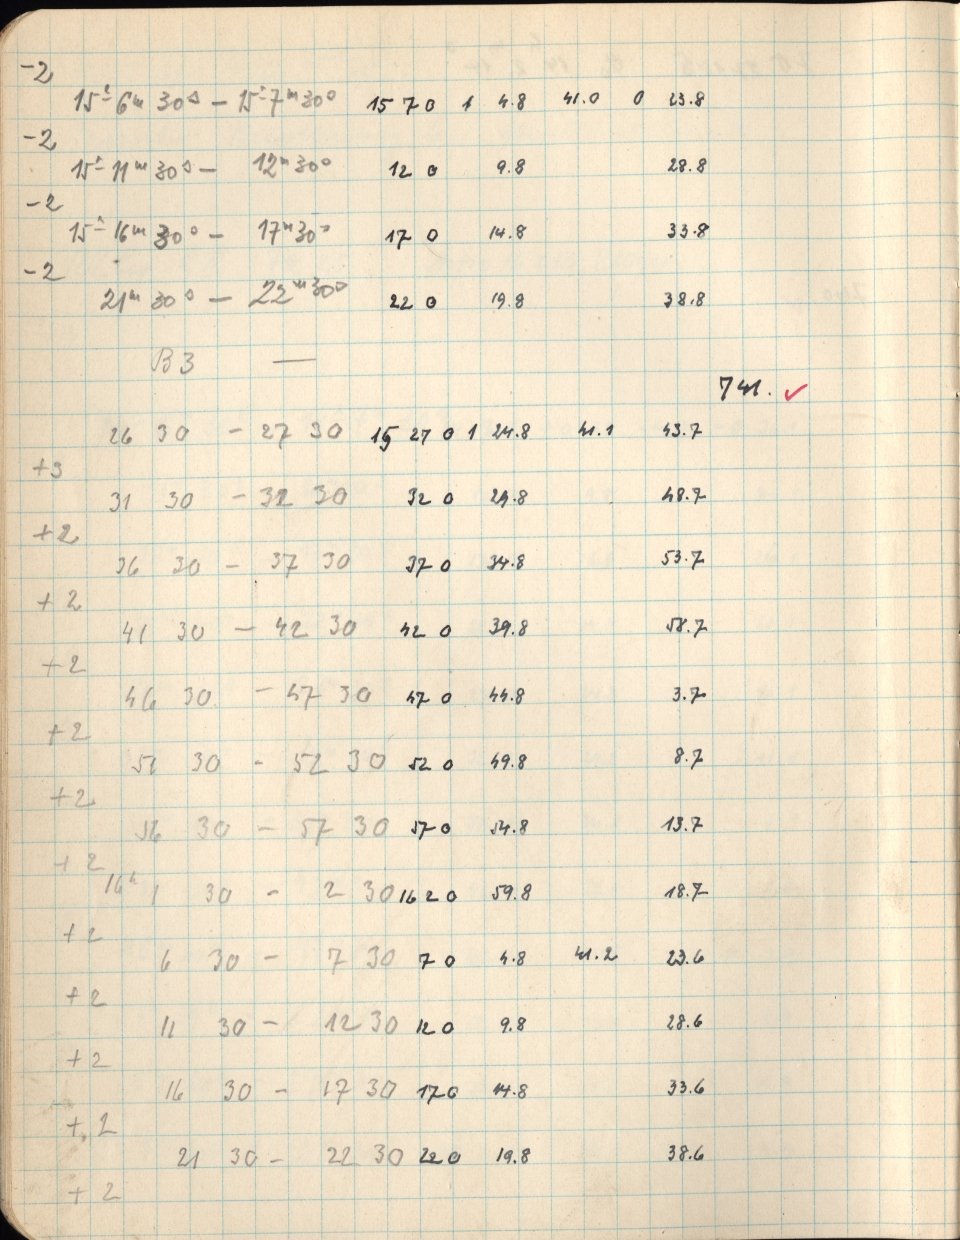 -2
15ʰ 6ᵐ 30ˢ – 15ʰ 7ᵐ 30ˢ 15 7 0 1 4.8 41.0 0 23.8
-2
15ʰ 11ᵐ 30ˢ – 12ᵐ 30ˢ 12 0 9.8 28.8
-2
15ʰ 16ᵐ 30ˢ – 17ᵐ 30ˢ 17 0 14.8 33.8
-2
21ᵐ 30ˢ – 22ᵐ 30ˢ 22 0 19.8 38.8
B3 —
741. ✓
26 30 – 27 30 15 27 0 1 24.8 41.1 43.7
+3
31 30 – 32 30 32 0 29.8 48.7
+2
36 30 – 37 30 37 0 34.8 53.7
+2
41 30 – 42 30 42 0 39.8 58.7
+2
46 30 – 47 30 47 0 44.8 3.7
+2
51 30 – 52 30 52 0 49.8 8.7
+2
56 30 – 57 30 57 0 54.8 13.7
+2
16ʰ 1 30 – 2 30 16 2 0 59.8 18.7
+2
6 30 – 7 30 7 0 4.8 41.2 23.6
+2
11 30 – 12 30 12 0 9.8 28.6
+2
16 30 – 17 30 17 0 14.8 33.6
+2
21 30 – 22 30 22 0 19.8 38.6
+2